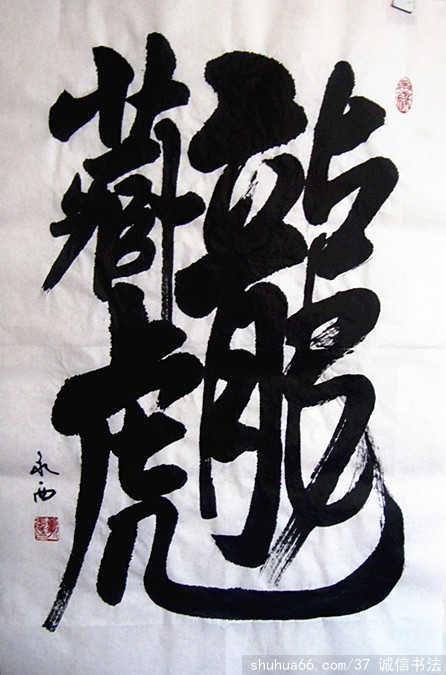 龍
藏虎
永西
shuhua66.com/37 诚信书法